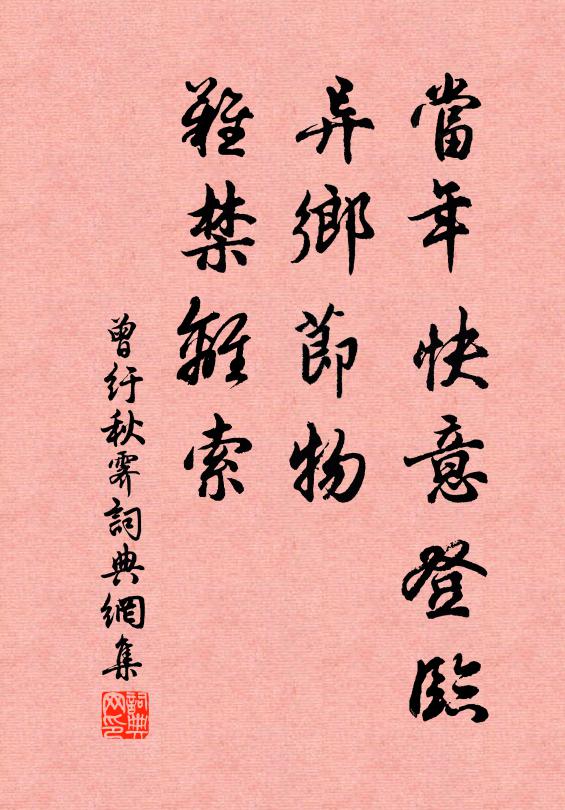 當年快意登臨
异鄉節物
難禁離索
曾紆秋霽詞典網集
詞典
网印